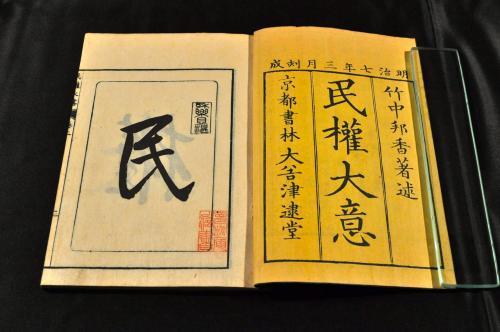 明治七年三月刻成
竹中邦香著述
民權大意
京都書林 大谷津逮堂
民